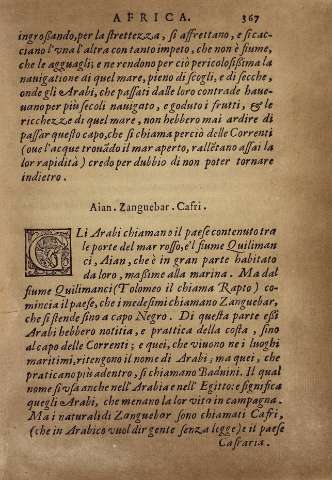 AFRICA. 367
ingrossando, per la strettezza, si affrettano, e si cac-
ciano l'vna l'altra con tanto impeto, che non è fiume,
che le agguagli; e ne rendono per ciò pericolosissima la
nauigatione di quel mare, pieno di scogli, e di secche,
onde gli Arabi, che passati dalle loro contrade haue-
uano per più secoli nauigato, e goduto i frutti, & le
ricchezze di quel mare, non hebbero mai ardire di
passar questo capo, che si chiama perciò delle Correnti
(oue l'acque trouādo il mar aperto, rallētano assai la
lor rapidità) credo per dubbio di non poter tornare
indietro.
Aian. Zanguebar. Cafri.
GLi Arabi chiamano il paese contenuto tra
le porte del mar rosso, e'l fiume Quiliman
ci, Aian, che è in gran parte habitato
da loro, massime alla marina. Ma dal
fiume Quilimanci (Tolomeo il chiama Rapto) co-
mincia il paese, che i medesimi chiamano Zanguebar,
che si stende sino a capo Negro. Di questa parte essi
Arabi hebbero notitia, e prattica della costa, sino
al capo delle Correnti; e quei, che viuono ne i luoghi
maritimi, ritengono il nome di Arabi; ma quei, che
praticano più adentro, si chiamano Baduini. Il qual
nome si vsa anche nell'Arabia e nell'Egitto: e significa
quegli Arabi, che menano la lor vita in campagna.
Ma i naturali di Zanguebar sono chiamati Cafri,
(che in Arabico vuol dir gente senza legge) e il paese
Cafraria.